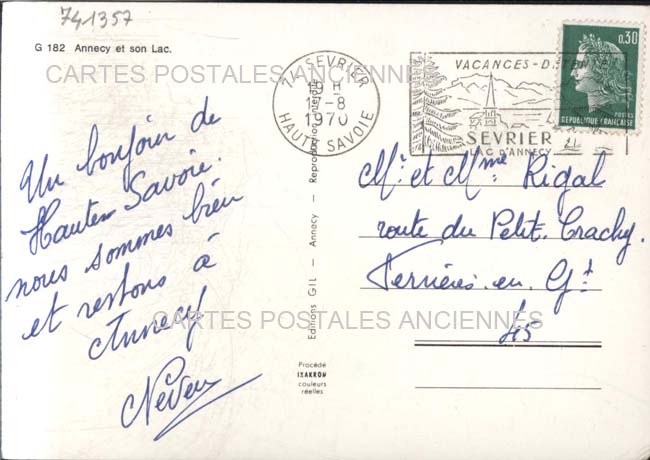 74-1357
G 182 Annecy et son Lac.
CARTES POSTALES ANCIENNES
74 SEVRIER
18 H
-8
1970
HAUTE SAVOIE
VACANCES-DÉTENTE
SEVRIER
LAC D'ANNECY
0,30
POSTES
REPUBLIQUE FRANÇAISE
Un bonjour de
Haute Savoie.
nous sommes bien
et restons à
Annecy
Neveu
Mr. et Mme. Rigal
route du Petit. Crachy.
Ferrières en Gt
45
Editions GIL - Annecy - Reproduction interdite
CARTES POSTALES ANCIENNES
Procédé
IXAKROM
couleurs
réelles